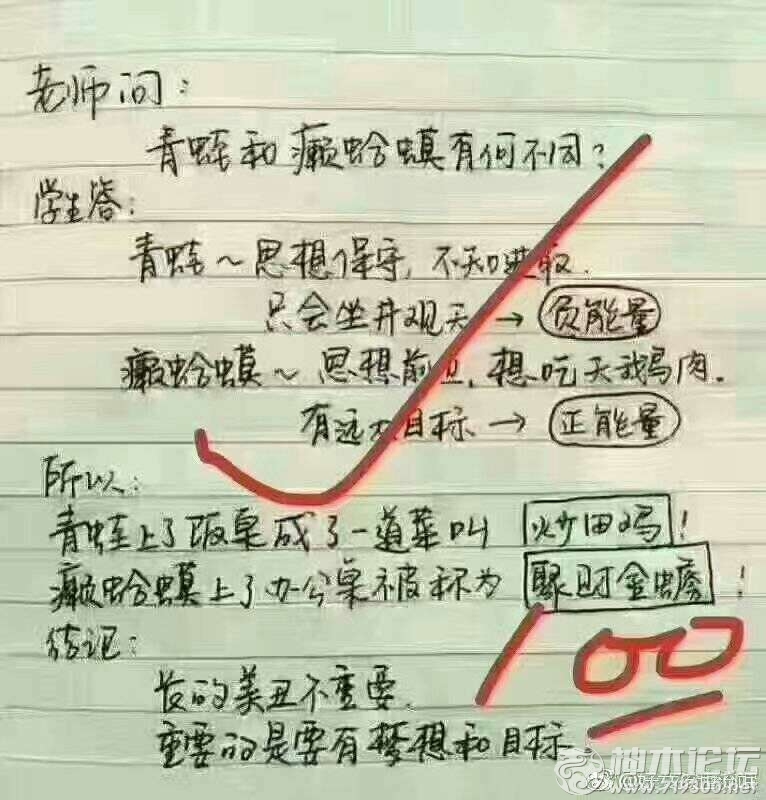 老师问:
青蛙和癞蛤蟆有何不同?
学生答:
青蛙~思想保守,不知进取.
只会坐井观天→负能量
癞蛤蟆~思想前卫,想吃天鹅肉.
有远大目标→正能量
所以:
青蛙上了饭桌成了一道菜叫 炒田鸡!
癞蛤蟆上了办公桌被称为 聚财金蟾!
结论:
长的美丑不重要.
重要的是要有梦想和目标
100
柚木论坛